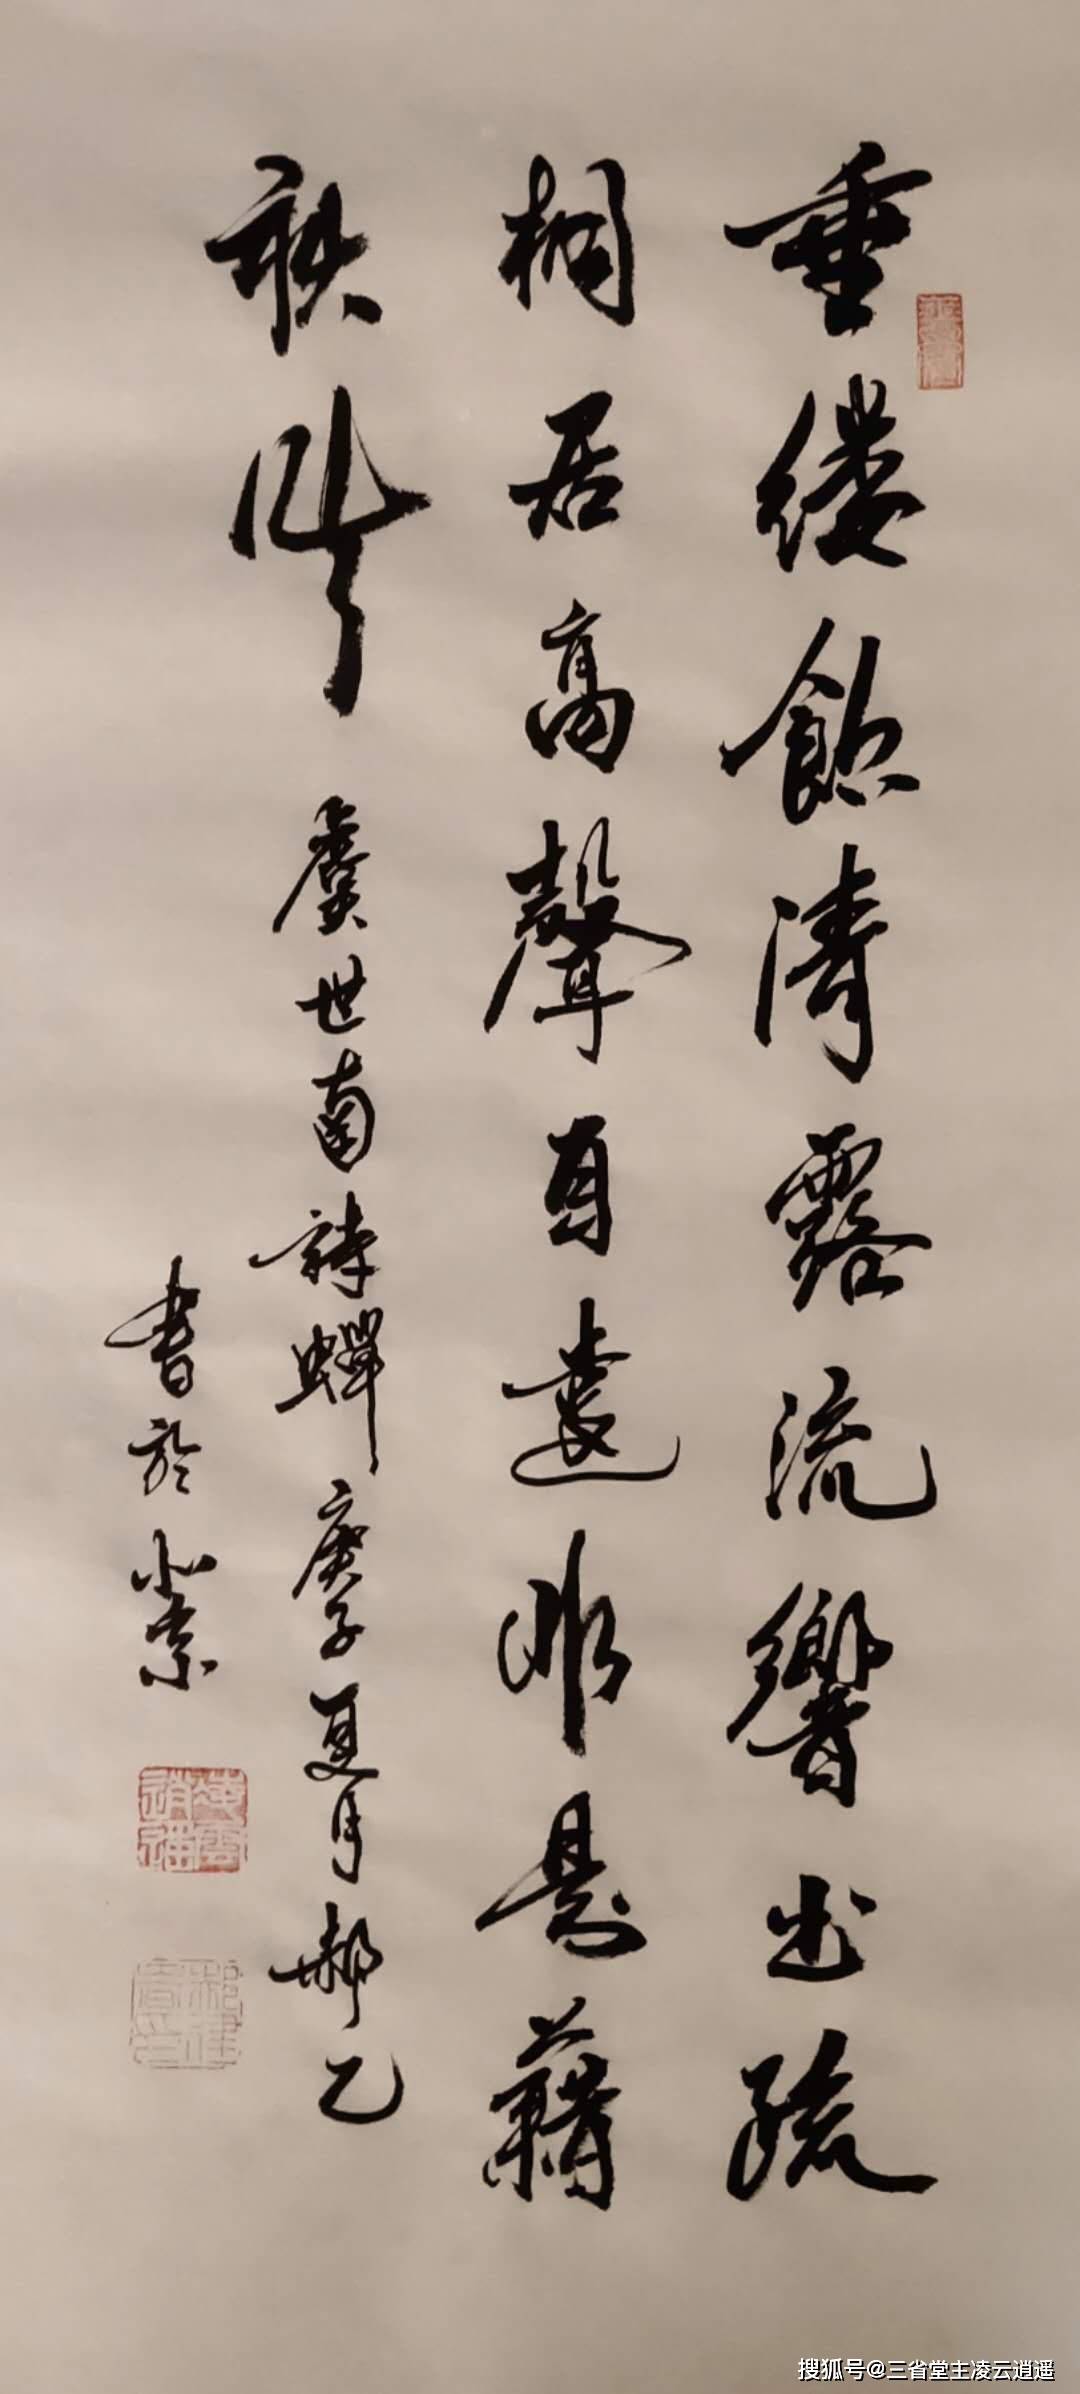 垂缕飲清露流響出疏
桐居高聲自遠非是藉
秋風 虞世南詩蟬庚子夏月郝乙
書於北京
凌雲逍遙
搜狐号@三省堂主凌云逍遥